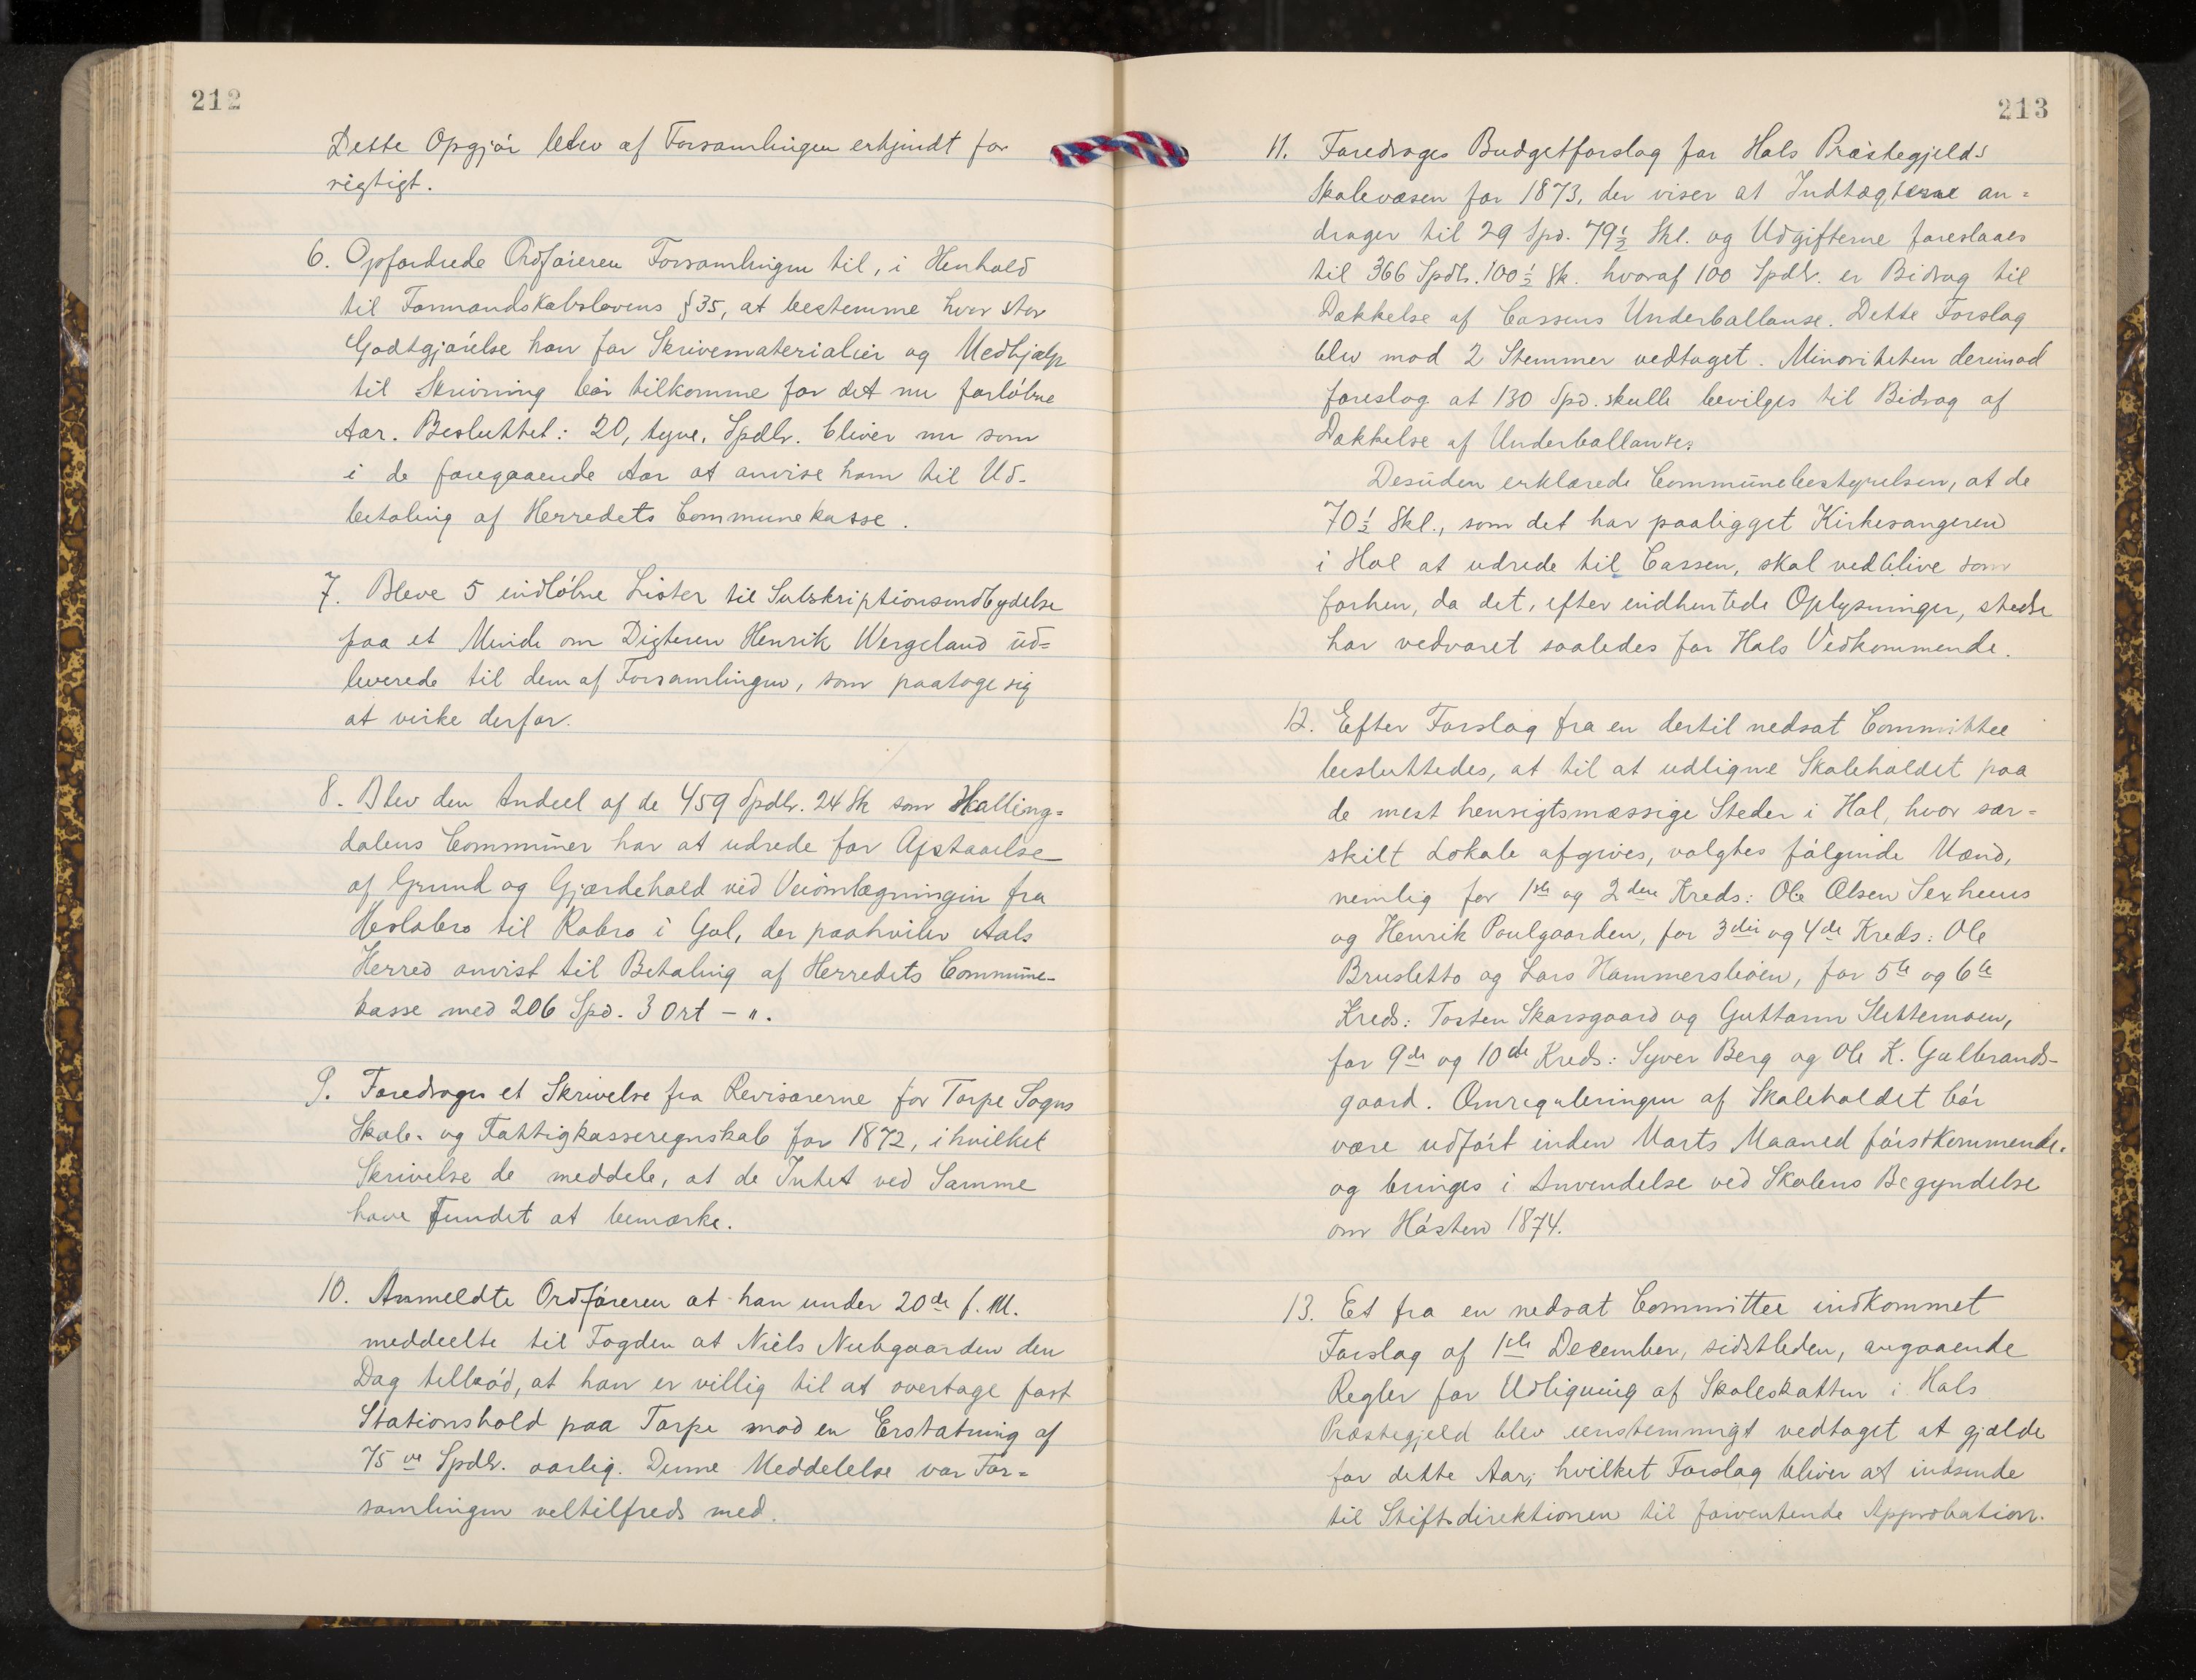 212
Dette Opgjör blev af Forsamlingen erkjendt for
rigtigt.
6. Opfordrede Ordföreren Forsamlingen til, i Henhold
til Formandskabslovens §35, at bestemme hvor stor
Godtgjörelse han for Skrivematerialier og Medhjælp
til Skrivning bör tilkomme for det nu forlöbne
Aar. Besluttet: 20, tyve, Spdlr. bliver nu som
i de foregaaende Aar at anvise ham til Ud-
betaling af Herredets Communekasse.
7. Bleve 5 indlöbne Lister til Subskriptionsindbydelse
paa et Minde om Digteren Henrik Wergeland ud=
leverede til dem af Forsamlingen, som paatoge sig
at virke derfor.
8. Blev den Andeel af de 459 Spdlr. 24 Sk som Halling=
dalens Communer har at udrede for Afstaaelse
af Grund og Gjærdehold ved Veiomlægningen fra
Heslabro til Robro i Gol, der paahviler Aals
Herred anvist til Betaling af Herredets Commune-
kasse med 206 Spd. 3 Ort – ".
9. Foredroges et Skrivelse fra Revisorerne for Torpe Sogns
Skole- og Fattigkasseregnskab for 1872, i hvilket
Skrivelse de meddele, at de Intet ved Samme
have fundet at bemærke.
10. Anmeldte Ordföreren at han under 20de f. M.
meddeelte til Fogden at Niels Nubgaarden den
Dag tilböd, at han er villig til at overtage fast
Stationshold paa Torpe mod en Erstatning af
75 ve Spdlr. aarlig. Denne Meddelelse var For=
samlingen veltilfreds med.
213
11. Foredroges Budgetforslag for Hols Præstegjelds
Skolevæsen for 1873, der viser at Indtægterne an=
drager til 29 Spd. 79½ Skl. og Udgifterne foreslaaes
til 366 Spdlr. 100½ Sk. hvoraf 100 Spdlr. er Bidrag til
Dækkelse af Cassens Underballanse. Dette Forslag
blev mod 2 Stemmer vedtaget. Minoriteten derimod
foreslog at 130 Spd. skulle bevilges til Bidrag af
Dækkelse af Underballansen.
Desuden erklærede Communebestyrelsen, at de
70½ Skl., som det har paaligget Kirkesangeren
i Hol at udrede til Cassen, skal vedblive som
forhen, da det, efter indhentede Oplysninger, stedse
har vedvaret saaledes for Hols Vedkommende.
12. Efter Forslag fra en dertil nedsat Committee
besluttedes, at til at udligne Skoleholdet paa
de mest hensigtsmæssige Steder i Hol, hvor sær=
skilt Lokale afgives, valgtes fölgende Mænd,
nemlig for 1ste og 2den Kreds: Ole Olsen Sexhuus
og Henrik Poulgaarden, for 3die og 4de Kreds: Ole
Brusletto og Lars Hammersböen, for 5te og 6te
Kreds: Tosten Skarsgaard og Guttorm Slettemoen,
for 9de og 10de Kreds: Syver Berg og Ole K. Gulbrands-
gaard. Omreguleringen af Skoleholdet bör
være udfört inden Marts Maaned förstkommende.
og bringes i Anvendelse ved Skolens Begyndelse
om Hösten 1874.
13. Et fra en nedsat Committee indkommet
Forslag af 1ste December, sidstleden, angaaende
Regler for Udligning af Skoleskatten i Hols
Præstegjeld blev eenstemmigt vedtaget at gjælde
for dette Aar, hvilket Forslag bliver at indsende
til Stiftsdirektionen til forventende Approbation.